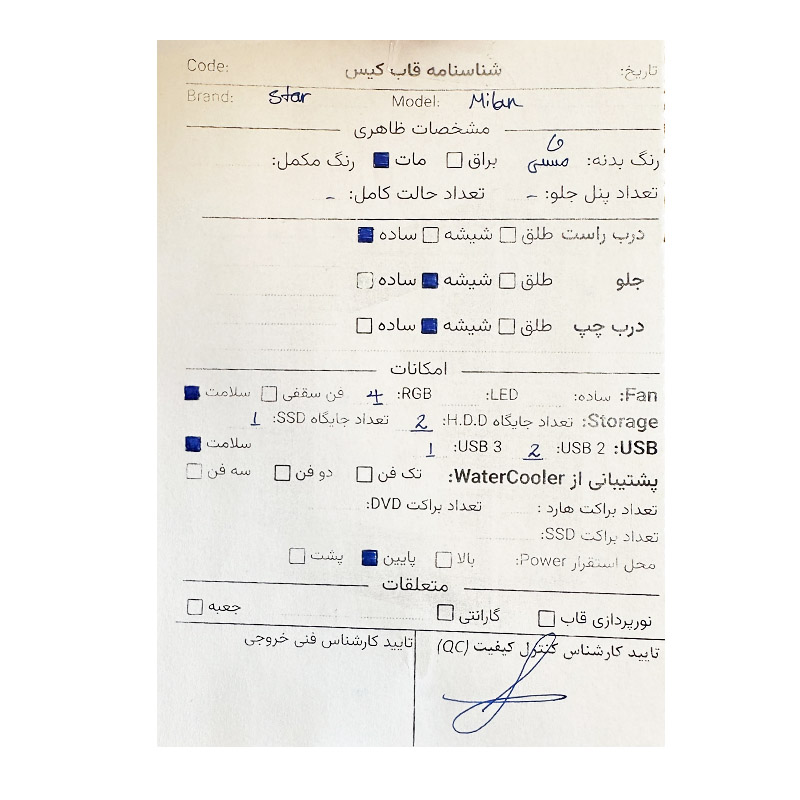 تاریخ: شناسنامه قاب کیس Code:
Brand: Star Model: Milan
مشخصات ظاهری
رنگ بدنه: مشکی براق مات رنگ مکمل:
تعداد پنل جلو: - تعداد حالت کامل: -
درب راست طلق شیشه ساده
جلو طلق شیشه ساده
درب چپ طلق شیشه ساده
امکانات
Fan: ساده: LED: RGB: 4 فن سقفی سلامت
Storage: تعداد جایگاه H.D.D: 2 تعداد جایگاه SSD: 1
USB: USB 2: 2 USB 3: 1 سلامت
پشتیبانی از WaterCooler: تک فن دو فن سه فن
تعداد براکت هارد : تعداد براکت DVD:
تعداد براکت SSD:
محل استقرار Power: بالا پایین پشت
متعلقات
نورپردازی قاب گارانتی جعبه
تایید کارشناس کنترل کیفیت (QC) تایید کارشناس فنی خروجی